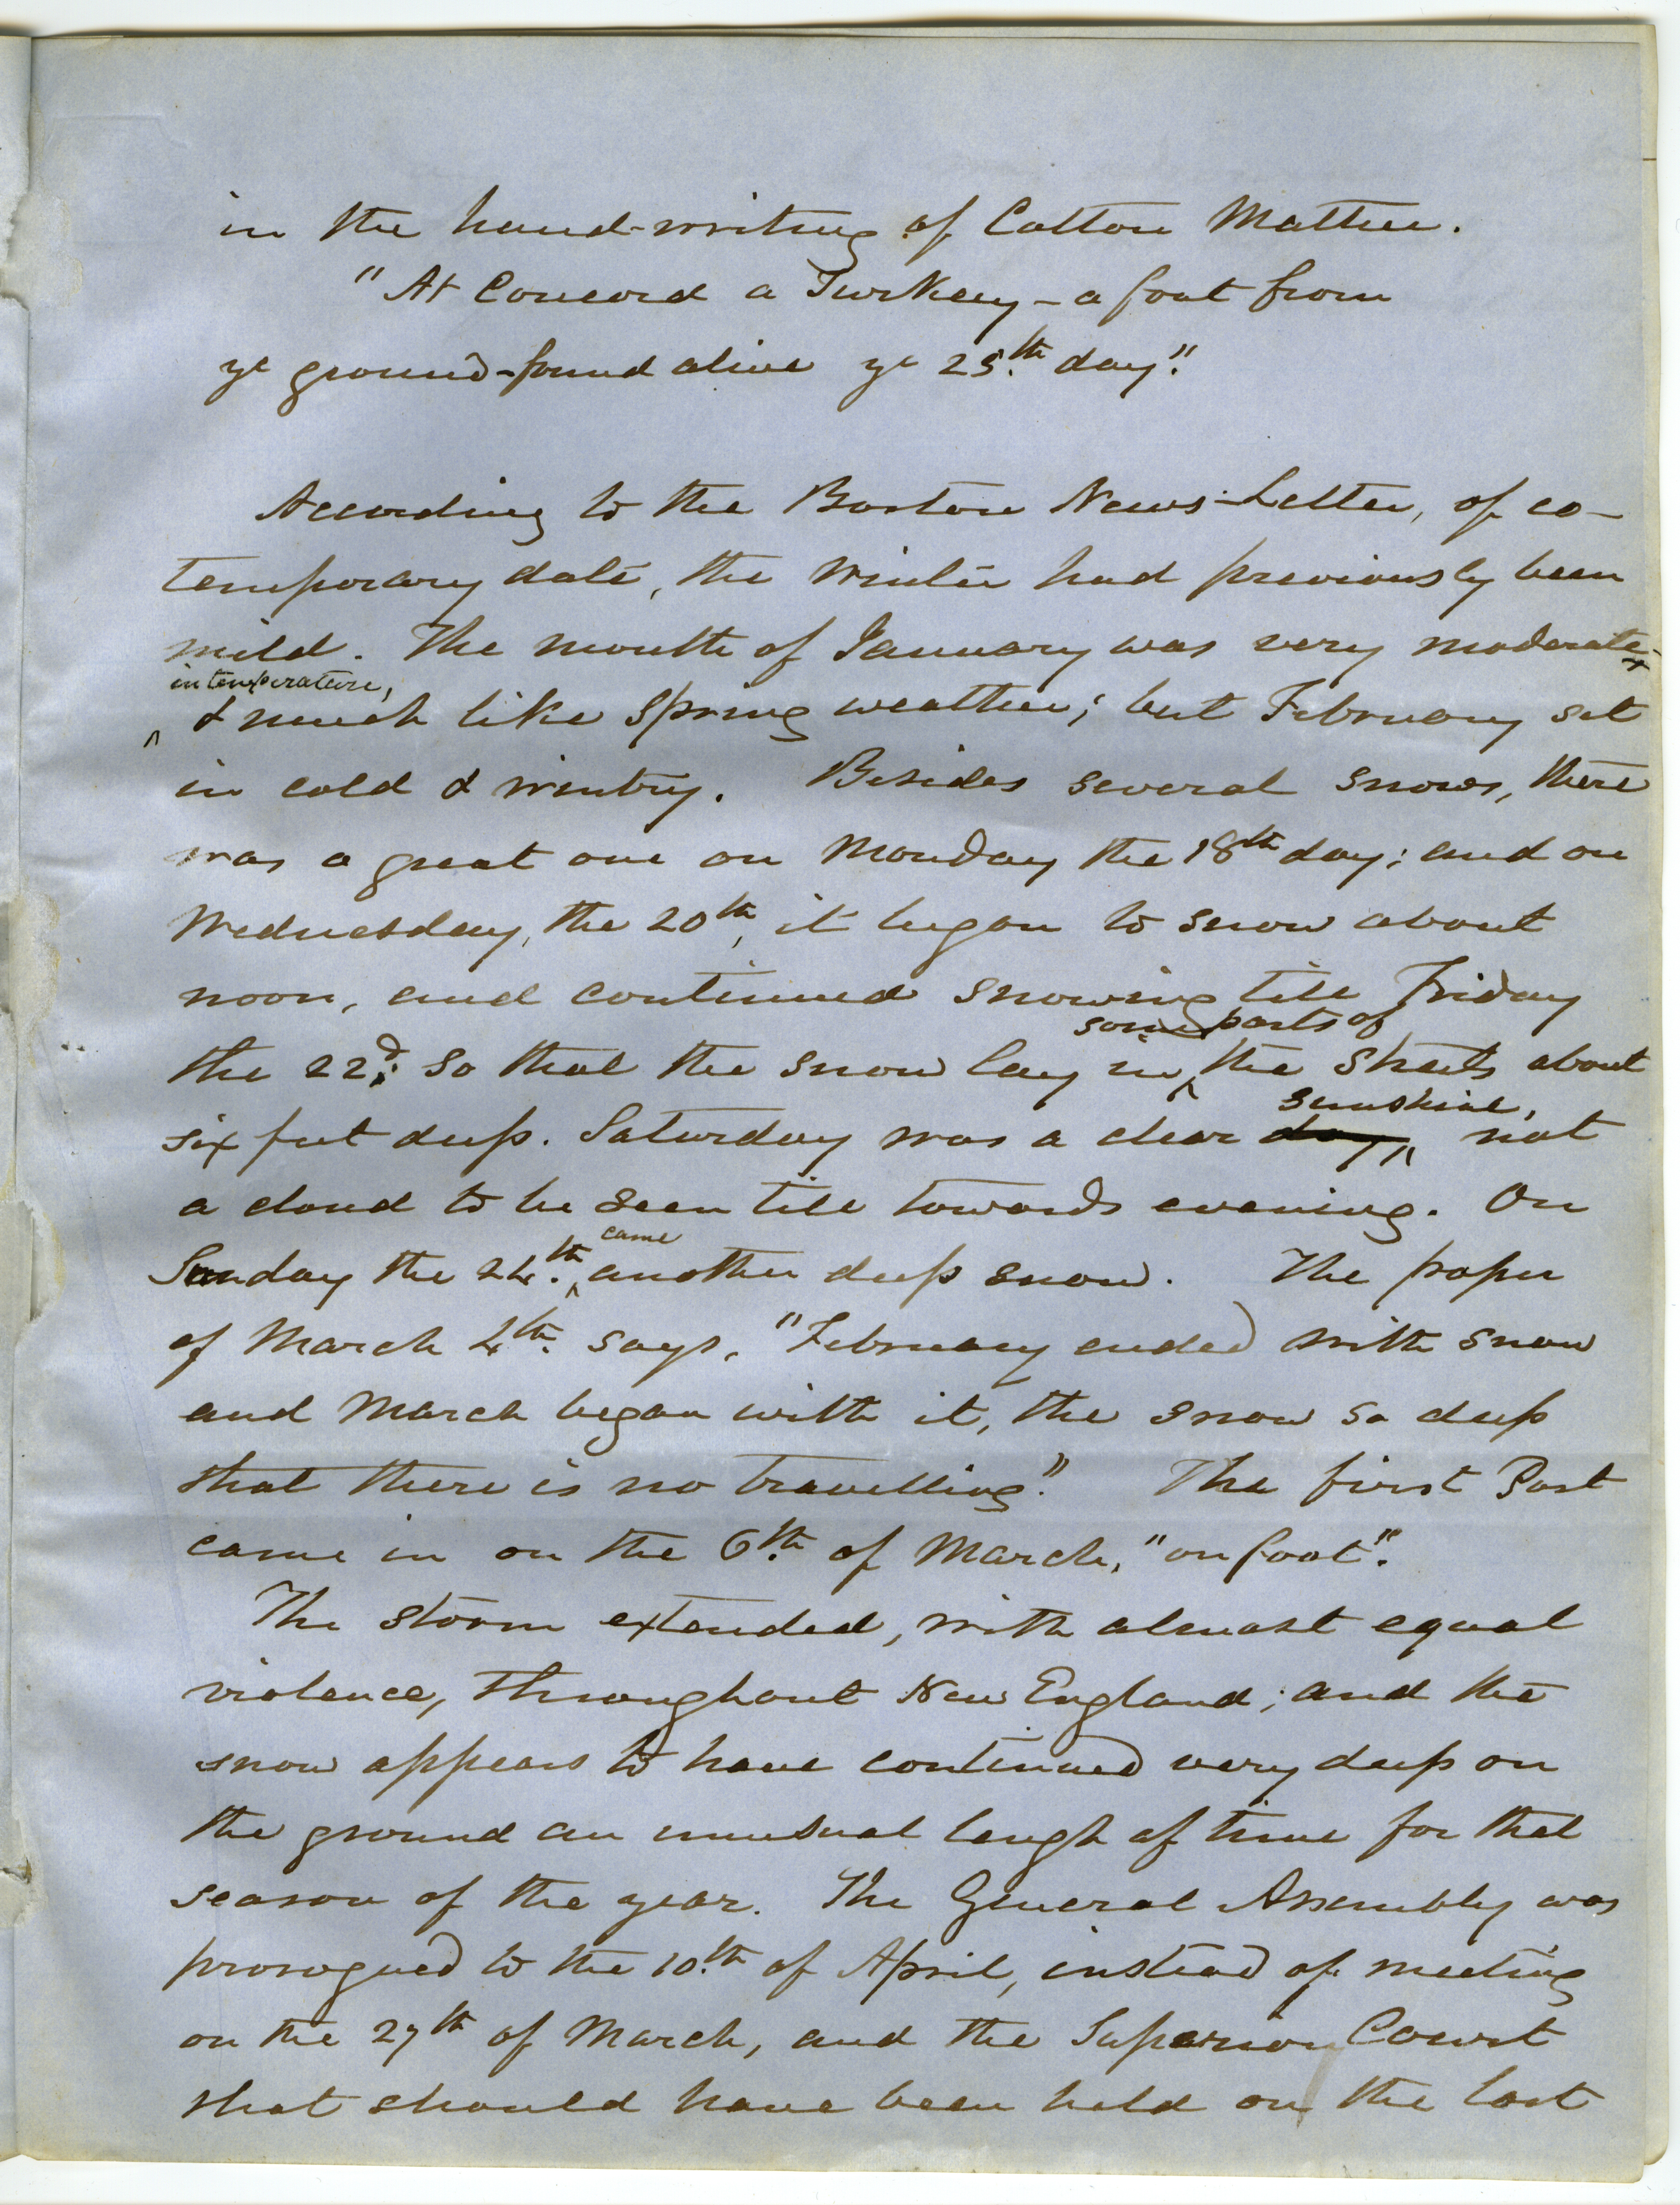 in the hand-writing of Cotton Mather.
"At Concord a Turkey - a foot from
ye ground - found alive ye 25.th day."
According to the Boston News-Letter, of co-
temporary date, the winter had previously been
mild. The month of January was very moderate
in temperature,
& much like Spring weather; but February set
in cold & wintry. Besides several snows, there
was a great one on Monday the 18th day; and on
Wednesday, the 20th, it began to snow about
noon, and continued snowing till Friday
some parts of
the 22d; so that the snow lay in the streets about
sunshine,
six feet deep. Saturday was a clear day, not
a cloud to be seen till towards evening. On
came
Sunday the 24.th another deep snow. The paper
of March 4th. says, "February ended with snow
and March began with it, the snow so deep
that there is no travelling." The first Post
came in on the 6.th of March, "on foot".
The storm extended, with almost equal
violence, throughout New England; and the
snow appears to have continued very deep on
the ground an unusual lengh of time for that
season of the year. The General Assembly was
prorogued to the 10.th of April, instead of meeting
on the 27th of March, and the Superior Court
that should have been held on the last